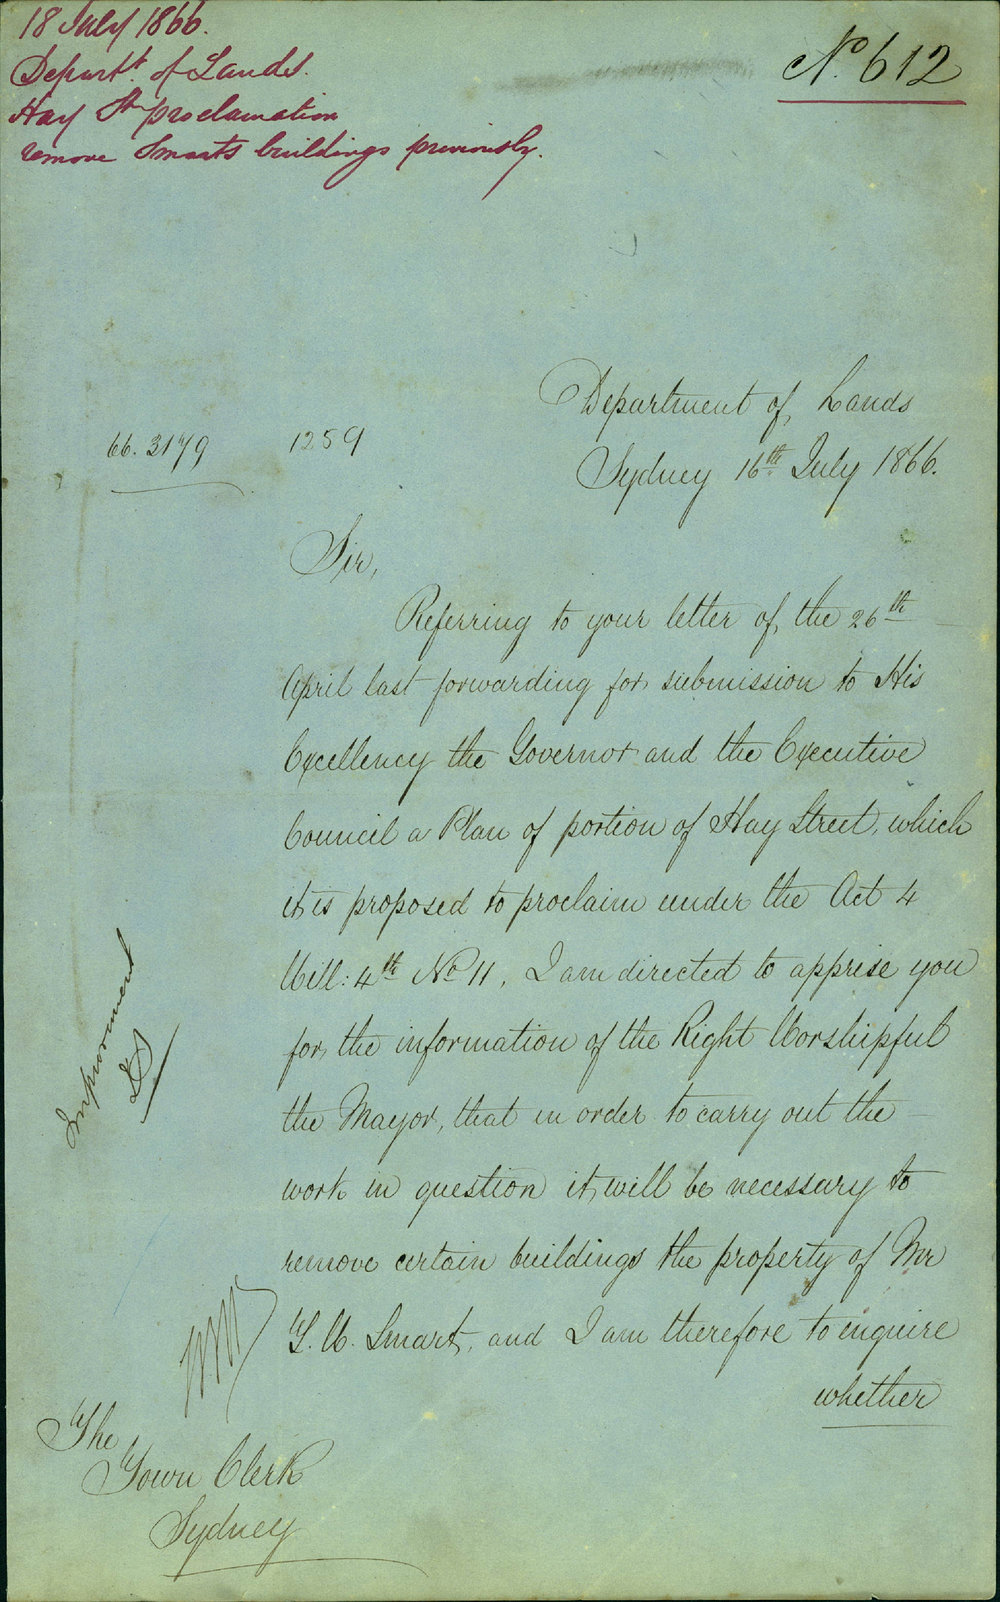 18 July 1866.
Departt. of Lands.
Hay St proclamation
remove Smarts buildings previously.
No. 612
Department of Lands
66.3179 1259
Sydney 16th July 1866.
Sir,
Referring to your letter of the 26th
April last forwarding for submission to His
Excellency the Governor and the Executive
Council a Plan of portion of Hay Street, which
it is proposed to proclaim under the Act 4
Will: 4th No 11, I am directed to apprise you
for the information of the Right Worshipful
the Mayor, that in order to carry out the
work in question it will be necessary to
remove certain buildings the property of Mr
T. W. Smart, and I am therefore to enquire
whether
Improvement
The
Town Clerk
Sydney